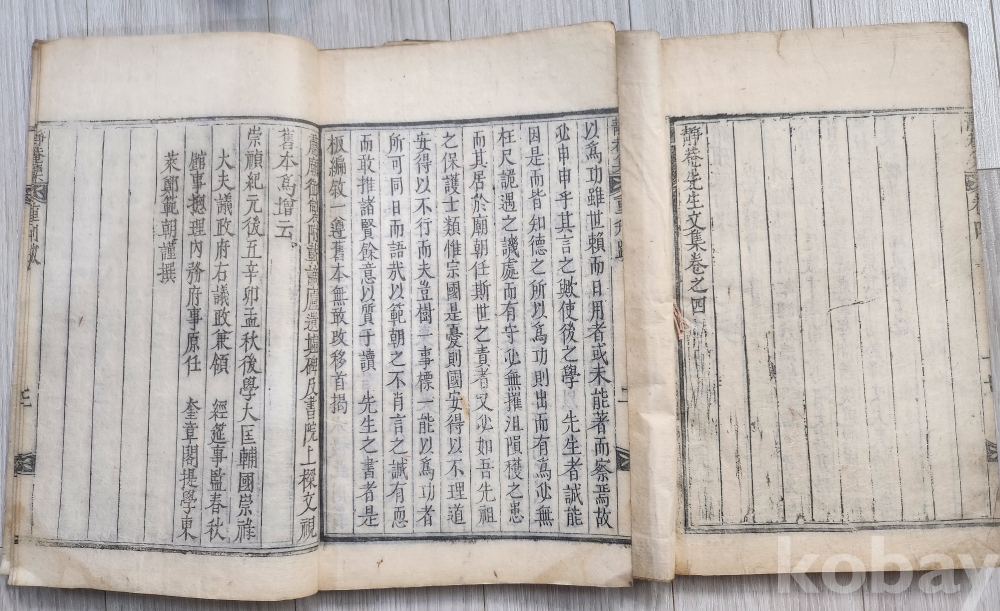 靜菴先生文集卷之四
以爲功雖世賴而日用者或未能著而察焉故
必申申乎其言之歟使後之學 先生者誠能
因是而皆知德之所以爲功則出而有爲必無
枉尺詭遇之譏處而有守必無摧沮隕穫之患
而其居於廟朝任斯世之責者又必如吾先祖
之保護士類惟宗國是憂則國安得以不理道
安得以不行而夫豈樹一事標一能以爲功者
所可同日而語哉以範朝之不肖言之誠有慁
而敢推諸賢餘意以質于讀 先生之書者是
板編敘一遵舊本無敢改移首揭
肅廟御製附諡議廬遺墟碑及書院上樑文視
舊本爲增云
崇禎紀元後五辛卯孟秋後學大匡輔國崇祿
大夫議政府右議政兼領 經筵事監春秋
館事總理內務府事原任 奎章閣提學東
萊鄭範朝謹撰
kobay